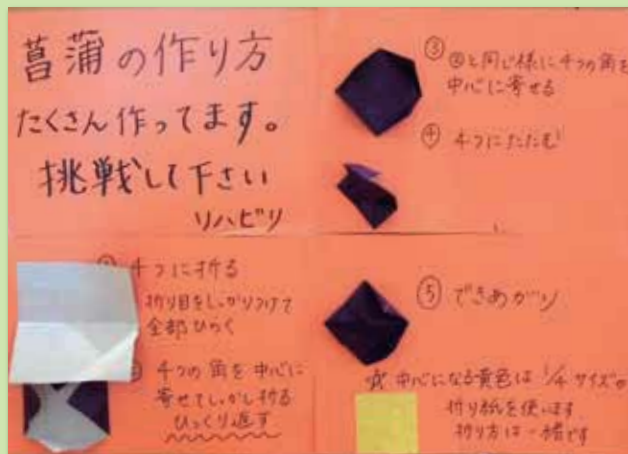 菖蒲の作り方
たくさん作ってます。
挑戦して下さい
リハビリ
4つに折る
折り目をしっかりつけて
全部ひらく
4つの角を中心に
寄せてしっかり折る
ひっくり返す
③ ②と同じ様に4つの角を
中心に寄せる
④ 4つにたたむ
⑤ できあがり
☆ 中心になる黄色は 1/4 サイズの
折り紙を使います
折り方は一緒です